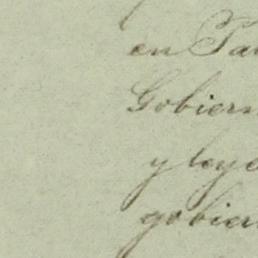 en Pa
Gobiern
y leye
gobier